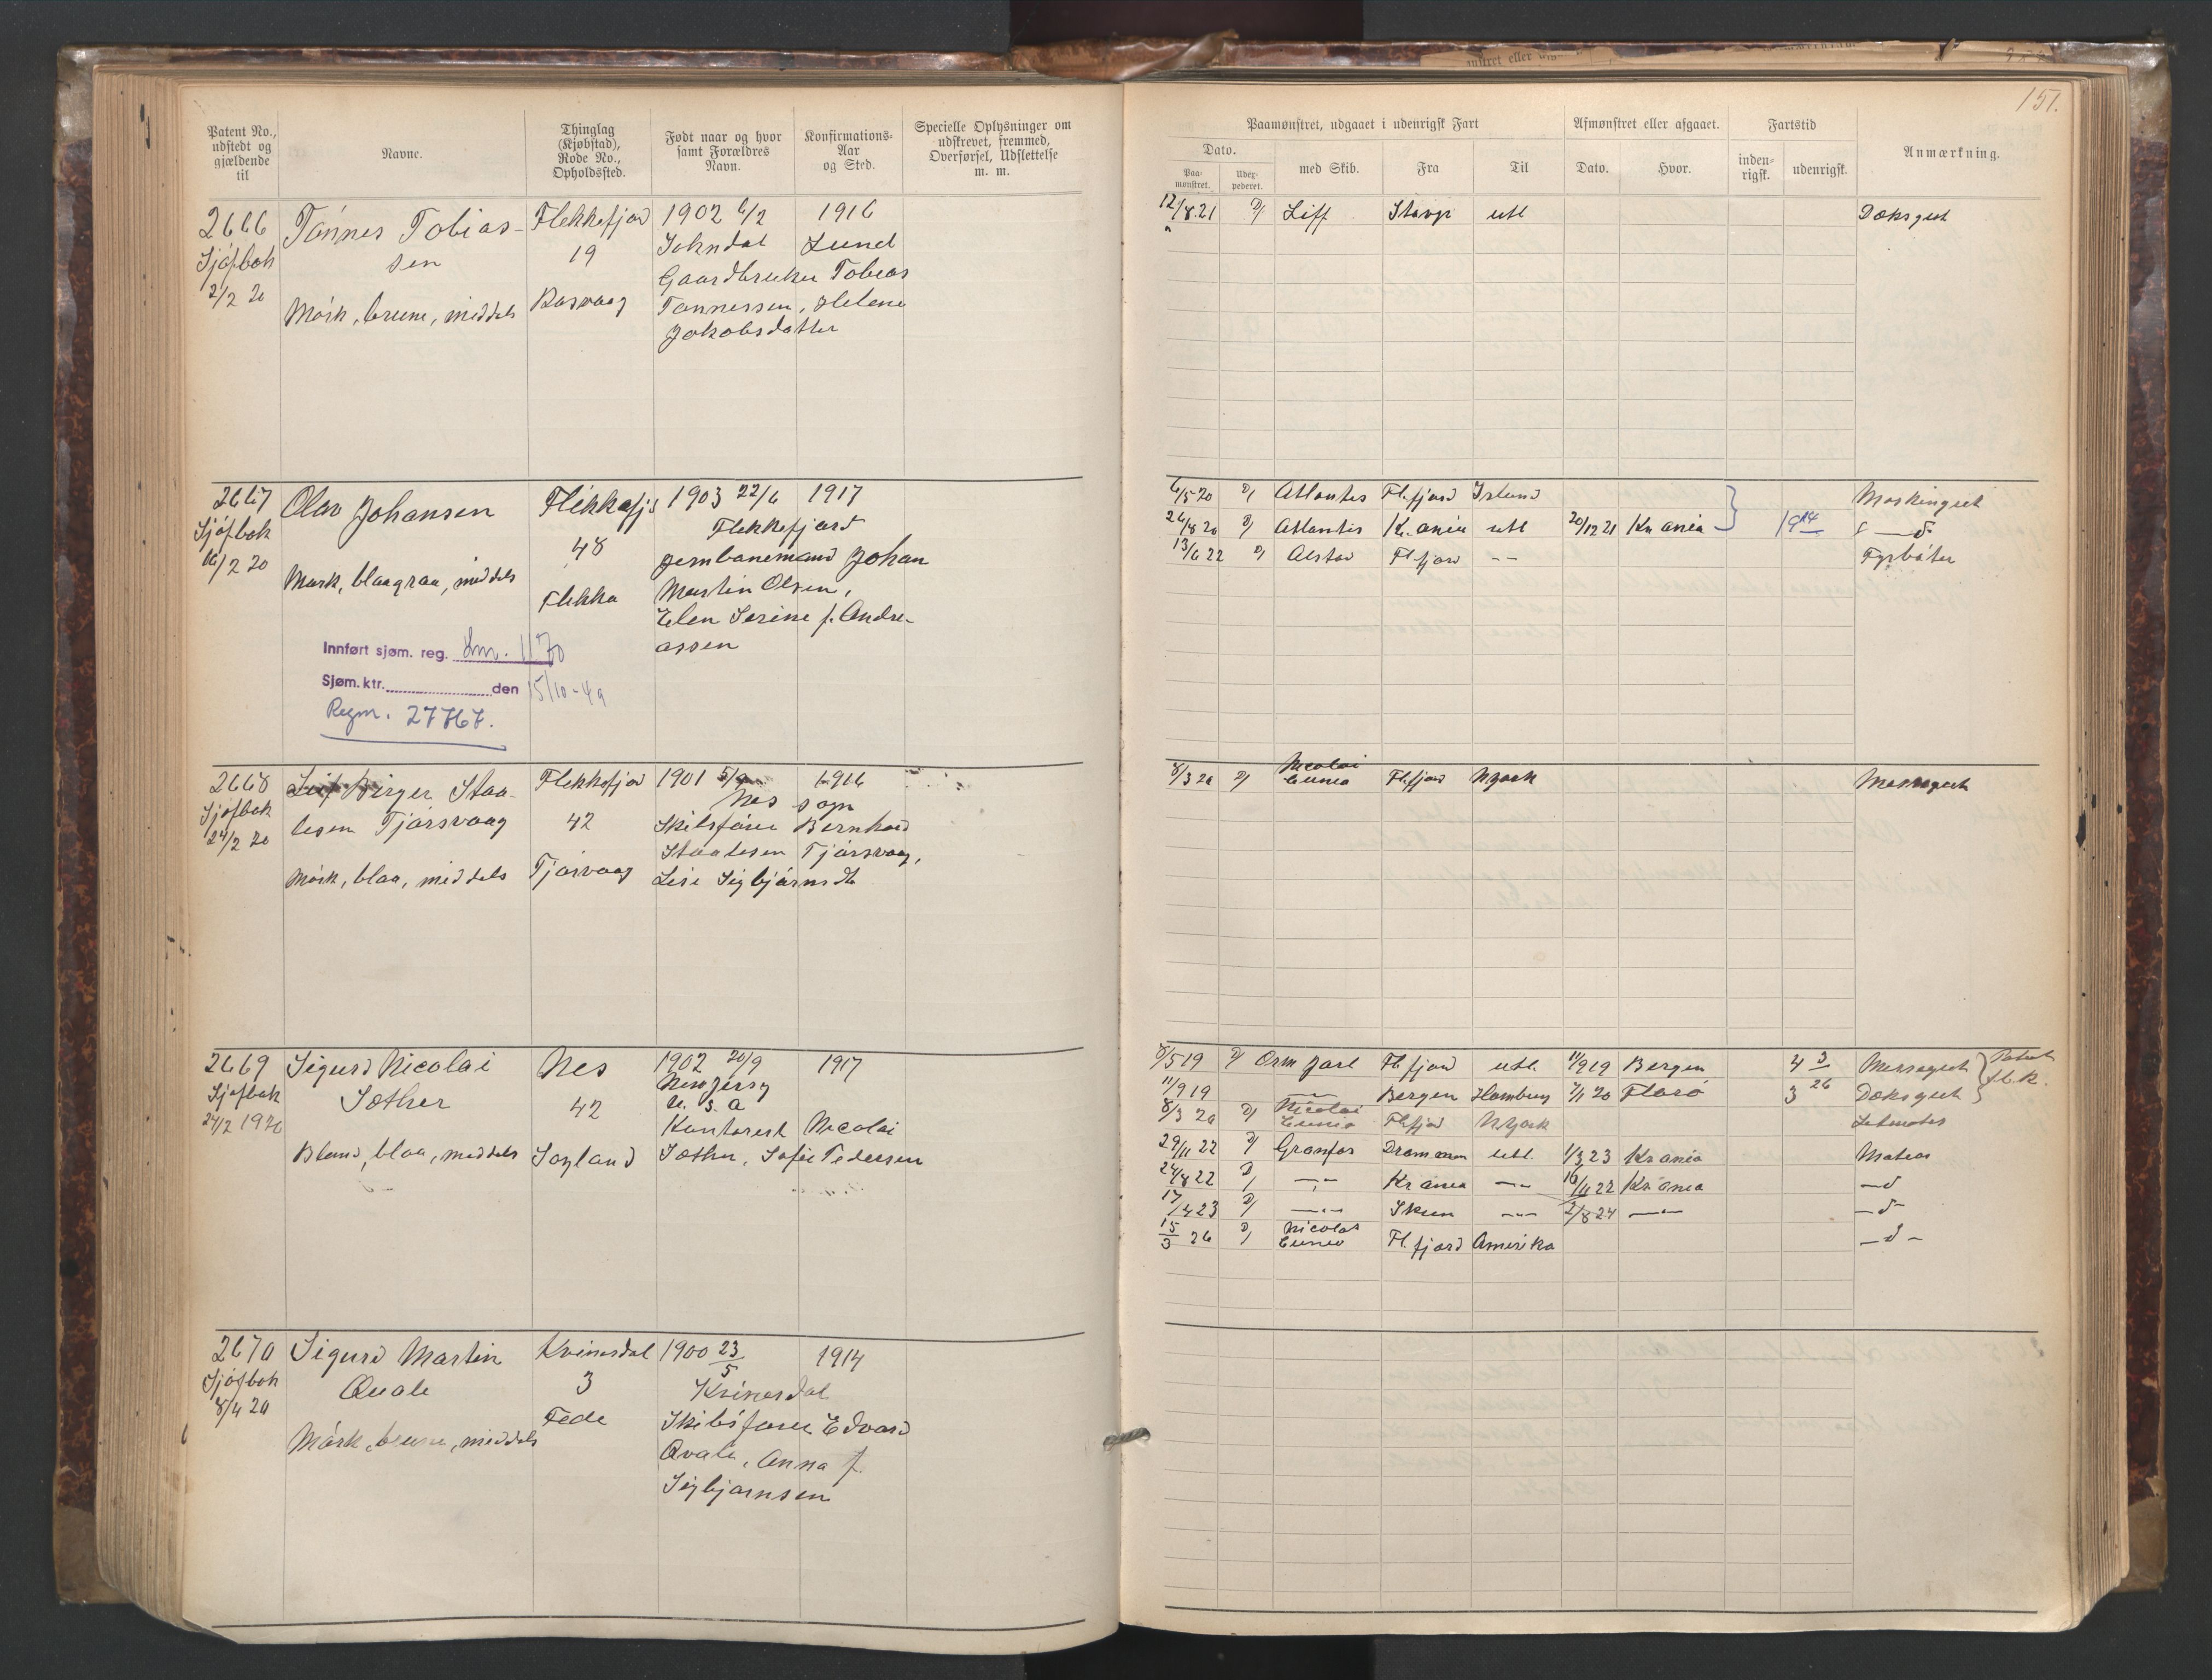 151.
Patent No., udstedt og gjældende til
Navne.
Thinglag (Kjøbstad), Rode No., Opholdssted.
Født naar og hvor samt Forældres Navn.
Konfirmations-Aar og Sted.
Specielle Oplysninger om udskrevet, fremmed, Overførsel, Udslettelse m. m.
Paamønstret, udgaaet i udenrigsk Fart
Afmønstret eller afgaaet.
Fartstid
Anmærkning.
Dato.
Paa-mønstret.
Udex-pederet.
med Skib.
Fra
Til
Dato.
Hvor.
inden-rigsk.
udenrigsk.
2666 Tónnes Tobias- Flekkefjord 1902 6/2 1916
Sjøfbok sen 19 Sokndal Lund
2/2 20 Gaardbruker Tobias
Mórk, brune, middels Rasvaag Tønnessen, Helene
Jakobsdatter
12/8 21 D/ Liff Stavgr utl Dæksgut
2667 Olav Johansen Flekkefjd 1903 22/6 1917
Sjøfbok Flekkefjord
16/2 20 48 Jernbanemand Johan
Mørk, blaagraa, middels Flekke Martin Olsen,
Elen Serine f. Andre-
assen
Innført sjøm. reg. Lm. 1170
Sjøm. ktr. den 15/10-49
Regnr. 27767.
6/5 20 D/ Atlantis Fl.fjord Island Maskingut
26/8 20 D/ Atlantis Kr.ania utl 20/12 21 Kr ania 19 14 — d
13/6 22 D/ Alstad Fl.fjord -- Fyrbóter
2668 Leif Birger Staa- Flekkefjord 1901 5/9 1916
Sjøfbok Nes sogn
24/2 20 lesen Tjørsvaag 42 Skibsfører Bernhard
Staalesen Tjørsvaag,
Mórk, blaa, middels Tjørvaag Lise Sigbjørnsdt
8/3 20 D/ Nicolai Cuneo Fl.fjord N.york Messegut
2669 Sigurd Nicolai Nes 1902 20/9 1917
Sjøfbok New Jersy
Sother 42 U. S. A
24/2 1920 Kontorist Nicolai
Blond, blaa, middels Loyland Sother, Sofie Pedersen
8/5 19 D/ Orm Jarl Fl.fjord utl. 11/9 19 Bergen 4 3 Messegut
11/9 19 —"— Bergen Hamburg 7/1 20 Florø 3 26 Dæksgut
8/3 20 D/ Nicolai Cuneo Fl.fjd N.york Letmatros
29/11 22 D/ Granfos Drammen utl. 1/3 23 Kr ania Matros
24/8 22 D/ —"— Kr ania —"— 16/11 22 Kr ania —d
17/4 23 D/ —"— Skien —"— 2/8 24 —"— —d—
15/3 26 D/ Nicolai Cuneo Fl.fjord Amerika —d—
2670 Sigurd Martin Kvinesdal 1900 23/5 1914
Sjøfbok Quale 3 Kvinesdal
8/4 20 Fede Skibsfører Edvard
Mórk, brune, middels Qvale, Anna f.
Sigbjørnsen